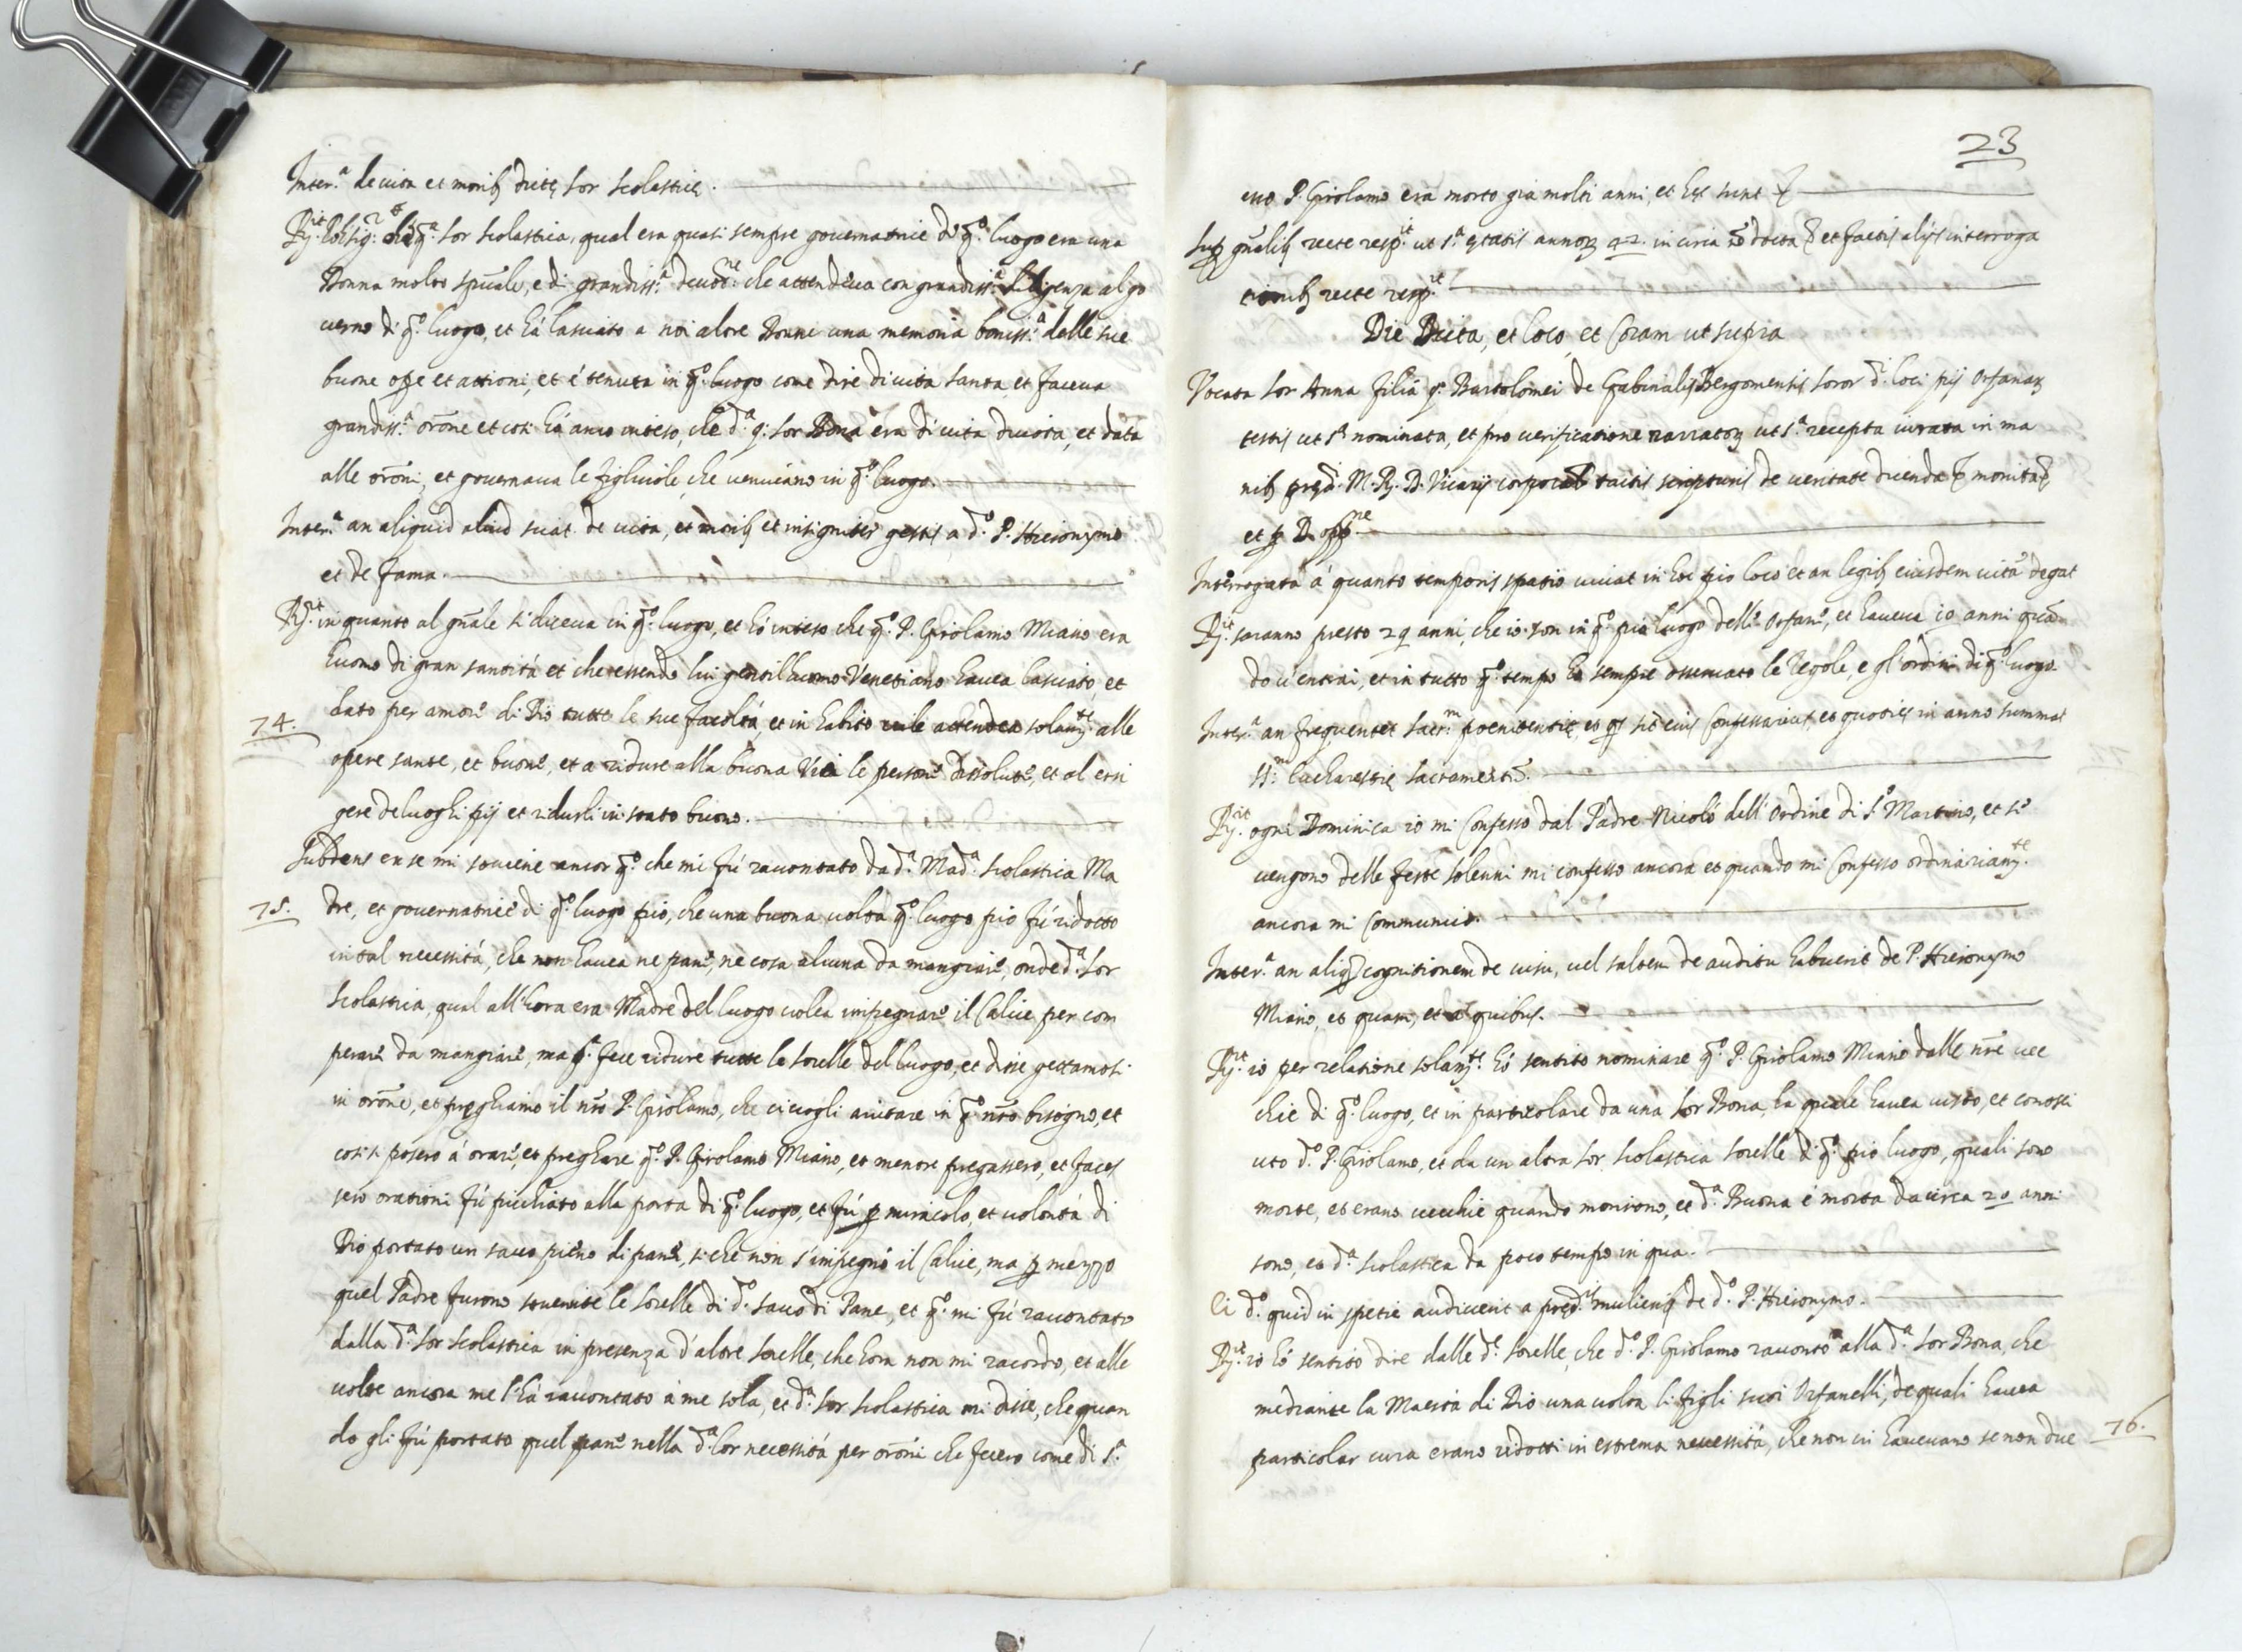 Inter.ª de vita et morib dictę sor scolasticę.
Rñ.it q.ª sor scolastica, qual era quasi sempre governatrice di q.º luogo era una
Donna molto spũale, e di grandiss.ª devot.ne che attendeva con grandiss.ª diligenza al go
verno di q.º luogo, et hà lasciato a noi altre Donne una memoria boniss.ª delle sue
buone oꝑe et attioni, et é tenuta in q.º luogo come dire di vita santa, et faceva
grandiss.ª orõne et così hò anco inteso, che d.ª q. sor Bona era di vita divota, et data
alle orõni, et governava le figliuole, che venivano in q.º luogo.
Inter.ª an aliquid aliud sciat de vita, et morib et insigniter gestis a d.º P. Hieronymo
et de fama.
Rñ.it in quanto al gñale si diceva in q.º luogo, et hò inteso che q.º P. Girolamo Miano era
huomo di gran santità et che essendo lui gentilhuomo Venetiano havea lasciato, et
74. dato per amore di Dio tutte le sue facoltà, et in habito vile attendea solam.te alle
opere sante, et buone, et a ridure alla buona via le persone dissolute, et al erri
gere de luoghi pij et ridurli in stato buono.
Subdens en se mi soviene ancor q.º che mi fú racontato da d.ª Mad.ª scolastica Ma
75. dre, et governatrice di q.º luogo pio, che una buona volta q.º luogo pio fú ridotto
in tal necessità, che non havea ne pane, ne cosa alcuna da mangiare, onde d.ª sor
scolastica, qual all'hora era Madre del luogo volea impegnare il Calice per com
perare da mangiare, ma q.ª fece ridure tutte le sorelle del luogo, et disse gettamosi
in orõne, et preghiamo il nrõ P. Girolamo, che ci vogli aiutare in q.º nrõ bisogno, et
cosi si posero á orare, et preghare q.º P. Girolamo Miano, et mentre pregassero, et faces
sero orationi fú picchiato alla porta di q.º luogo, et fú ꝑ miracolo, et volontá di
Dio portato un sacco pieno di pane, si che non s'impegnó il Calice, ma ꝑ mezzo
quel Padre furono sovenute le sorelle di d.º sacco di Pane, et q.º mi fú racontato
dalla d.ª sor scolastica in presenza d'altre sorelle, che hora non mi racordo, et alle
volte ancora me l'há racontato á me sola, et d.ª sor scolastica mi disse, che quan
do gli fú portato quel pane nella d.ª lor necessitá per orõni che fecero come di s.ª
23
P. Girolamo era morto giá molti anni, et hęc sunt
Suꝑ gñalib recte resp.it ut s.ª ętatis annoꝝ 42. in circa et factis alijs interroga
tionib recte resp.it
Die Dicta, et loco, et Coram ut supra
Vocata sor Anna filia q. Bartolomei de Gabinalijs Bergomensis soror d.i loci pij Orfanaꝝ
testis ut s.ª nominata, et pro verificatione narratoꝝ ut s.ª recepta iurata in ma
nib pręd.i M. R. D. Vicarij corporal tactis scripturis de veritate dicenda monita
et ꝑ D.
Interrogata á quanto temporis spatio vivat in hoc pio loco et an legib eiusdem vitã degat
Rñ.it saranno presto 29 anni, che io son in q.º pio luogo delle Orfane, et haveva 10 anni quã
do vi entrai, et in tutto q.º tempo hò sempre osservato le regole, e gl'ordini di q.º luogo.
Inter.ª an frequentet sacr.m poenitentię, et qs sit eius Confessarius, et quoties in anno summat
ss.m Eucharestię sacramentũ.
Rñ.it ogni Dominica io mi Confesso dal Padre Nicoló dell'Ordine di S.º Martino, et se
vengono delle feste solenni mi confesso ancora et quando mi Confesso ordinariam.te
ancora mi Communico.
Inter.ª an aliq cognitionem de visu, vel saltem de auditu habuerit de P. Hieronymo
Miano, et quam, et a quibus.
Rñ.it io per relatione solam.te hó sentito nominare q.º P. Girolamo Miano dalle nrẽ vec
chie di q.º luogo, et in particolare da una sor Bona, la quale havea visto, et conosci
uto d.º P. Girolamo, et da un altra sor scolastica sorelle di q.º pio luogo, quali sono
morte, et erano vecchie quando morirono, et d.ª Buona é morta da circa 20 anni
sono, et d.ª scolastica da poco tempo in qua.
Ei d.º quid in spetie audiverit a pręd.is mulierib de d.º P. Hieronymo.
Rñ.it io hó sentito dire dalle d.e sorelle, che d.º P. Girolamo racontò alla d.ª sor Bona, che
mediante la Maestá di Dio una volta li figli suoi Orfanelli, de quali havea
particolar cura erano ridotti in estrema necessitá, che non vi havevano se non due 76.